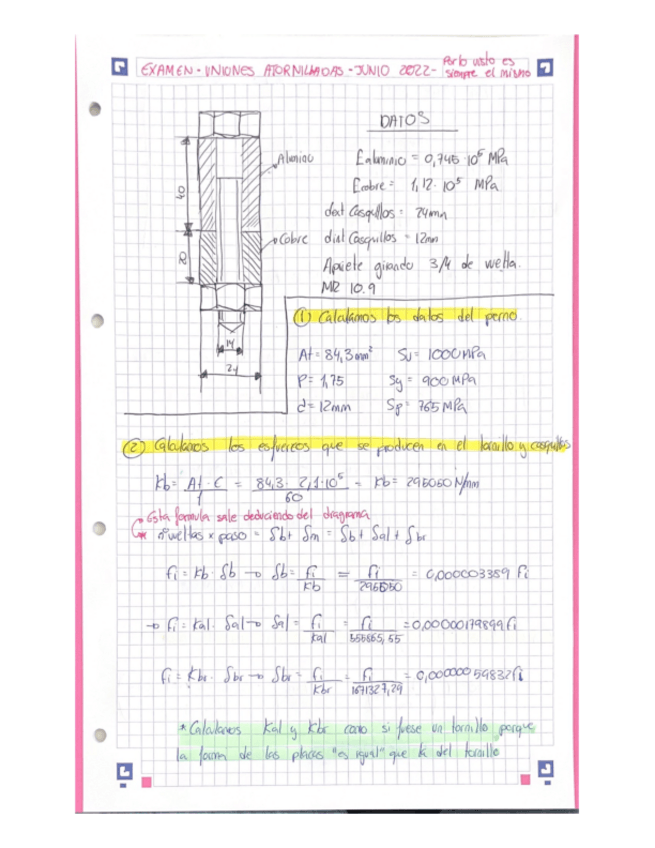 EXAMEN - UNIONES ATORNILLADAS - JUNIO 2022 - Por lo visto es siempre el mismo
DATOS
Aluminio
Ealuminio = 0,745·10⁵ MPa
Ecobre = 1,12·10⁵ MPa
40
dext Casquillos = 24mm
Cobre
dint Casquillos = 12mm
20
Apriete girando 3/4 de vuelta.
M12 10.9
① Calculamos los datos del perno.
14
24
At = 84,3 mm² Su = 1000MPa
P = 1,75 Sy = 900MPa
d = 12mm Sp = 765MPa
② Calculamos los esfuerzos que se producen en el tornillo y casquillos
Kb = At · E / l = 84,3 · 2,1·10⁵ / 60 = Kb = 295050 N/mm
Esta formula sale deduciendo del diagrama
* nº vueltas x paso = δb + δm = δb + δal + δbr
Fi = Kb · δb → δb = Fi / Kb = Fi / 295050 = 0,000003359 Fi
→ Fi = Kal · δal → δal = Fi / Kal = Fi / 555665,55 = 0,00000179899 Fi
Fi = Kbr · δbr → δbr = Fi / Kbr = Fi / 1671327,29 = 0,00000059832 Fi
* Calculamos Kal y Kbr como si fuese un tornillo porque
la forma de las placas "es igual" que la del tornillo